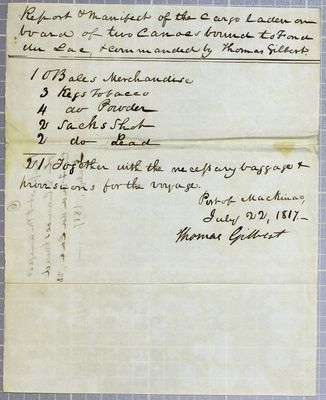 Report & Manifest of the Cargo laden on
board of two Canoes bound to Fond
du Lac, & commanded by Thomas Gilbert
10 Bales Merchandise
3 Kegs Tobacco
4 do Powder
2 Sacks Shot
2 do Lead
21 Together with the necessary baggage &
provisions for the voyage.
Port of Mackinac
July 22, 1817.
Thomas Gilbert